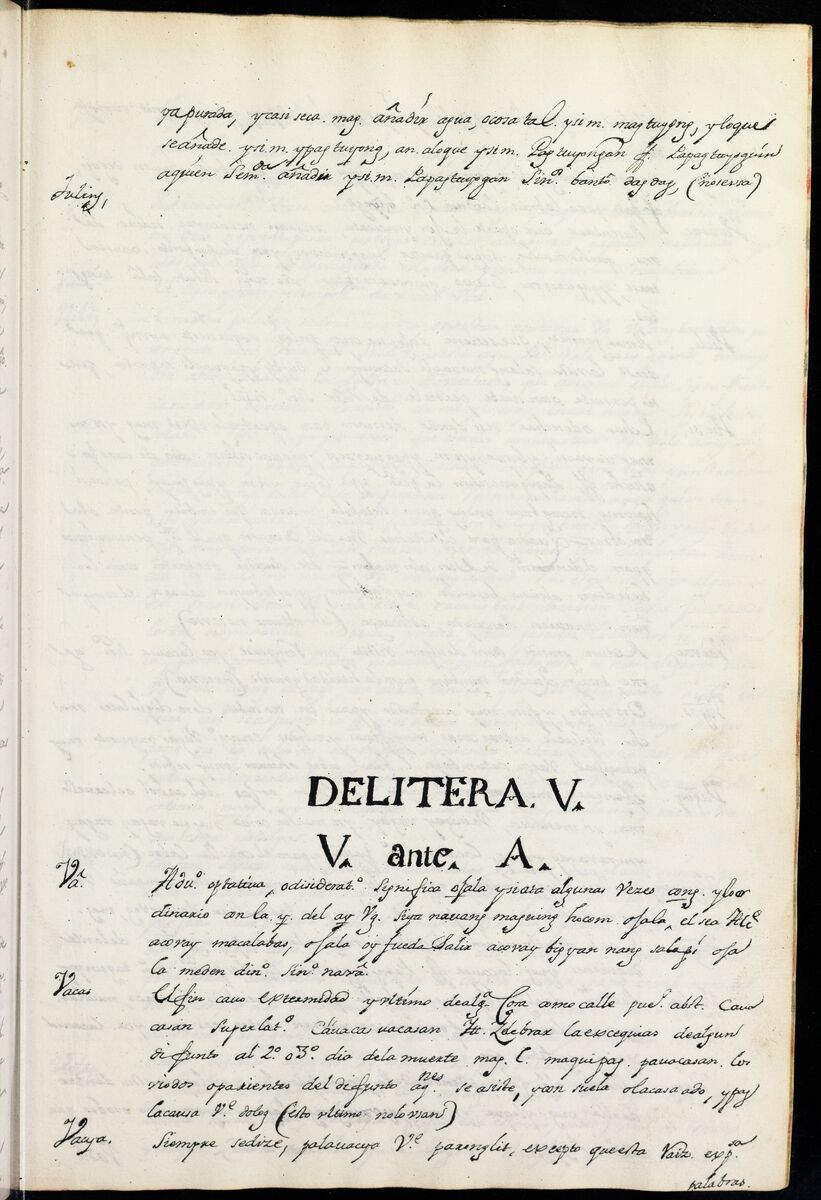 ya purada, y casi seca. mag. añadir agua, o cosa tal. y si m. magtuyong, y lo que
se añade. y si m. ypagtuyong, an. a lo que y si m. Lagtuyongan ff. Lapagtuyoguin
a quien Sem. añadir y si m. Lapagtuyogan Sinº. bantó dasdas, (no se usa)
Tuliny,
DELITERA. V.
V. ante. A.
Vã. Aduº. optativa, o disideratº. significa ojala y si ata algunas vezes ang. y lo or
dinario con la y. del ay Vg. Siya nauang maguing hocom. ojala, el sea
acoray macalabas, ojala oy pueda Salir acoray bigyan nang salapi oja
la me den dinº. Sinº. navã.
Vacas El fin cauo extremidad y vltimo de algª. Cosa como calle pueº. abst. Cauo
casan Superlatº. Cauacas vacasan It. Zelebrar la excequias de algun
difunto al 2º. o 3º. dia de la muerte mag. l. maquipag. pauacasan. los
viodos o parientes del difunto se asiste, y an suela o la casa ado, y pag
la causa Vᵉ. doleg (esto vltimo no lo vsan)
Vacya. Siempre se dize, palauacya Vᵉ. paronglit, excepto que esta Raiz. expª.
palabras.